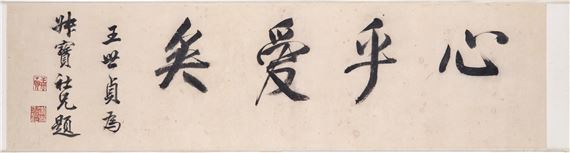 心乎愛矣
王世貞為
叔寶社兄題